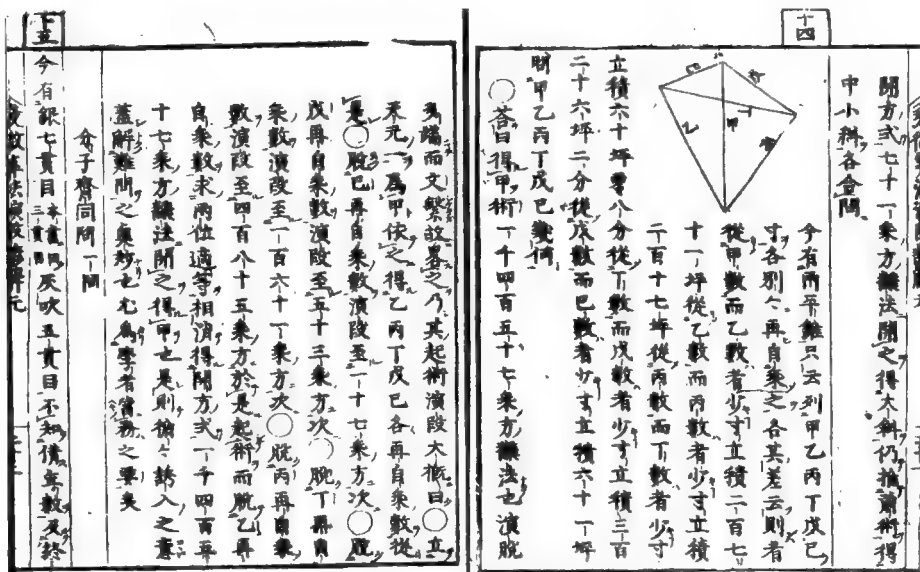 十四
開方式七十一乘方飜法開之得大斜仍推前術得
中小斜各合問
今有兩平錐只云列甲乙丙丁戊己
寸各別々再自乘之各其差云則者
從甲數而乙數者少寸立積二百七
十一坪從乙數而丙數者少寸立積
二百十七坪從丙數而丁數者少寸
立積六十坪零八分從丁數而戊數者少寸立積三百
二十六坪二分從戊數而己數者少寸立積六十一坪
問甲乙丙丁戊己幾何
答曰得甲術一千四百五十七乘方飜法也演脫
多端而文繁故畧之乃其起術演段大槪曰○立
天元一爲甲依之得乙丙丁戊己各再自乘數從
是○脫己再自乘數演段至一十七乘方次○脫
戊再自乘數演段至五十三乘方次○脫丁再自
乘數演段至一百六十一乘方次○脫丙再自乘
數演段至四百八十五乘方於是起術而脫乙再
自乘數求兩位適等相消得開方式一千四百五
十七乘方飜法開之得甲也是則循々誘入之意
蓋解難問之奧妙也尤爲學者當務之要矣
分子齊同問一問
十五
今有銀七貫目 灰吹五貫目不知借年數及終